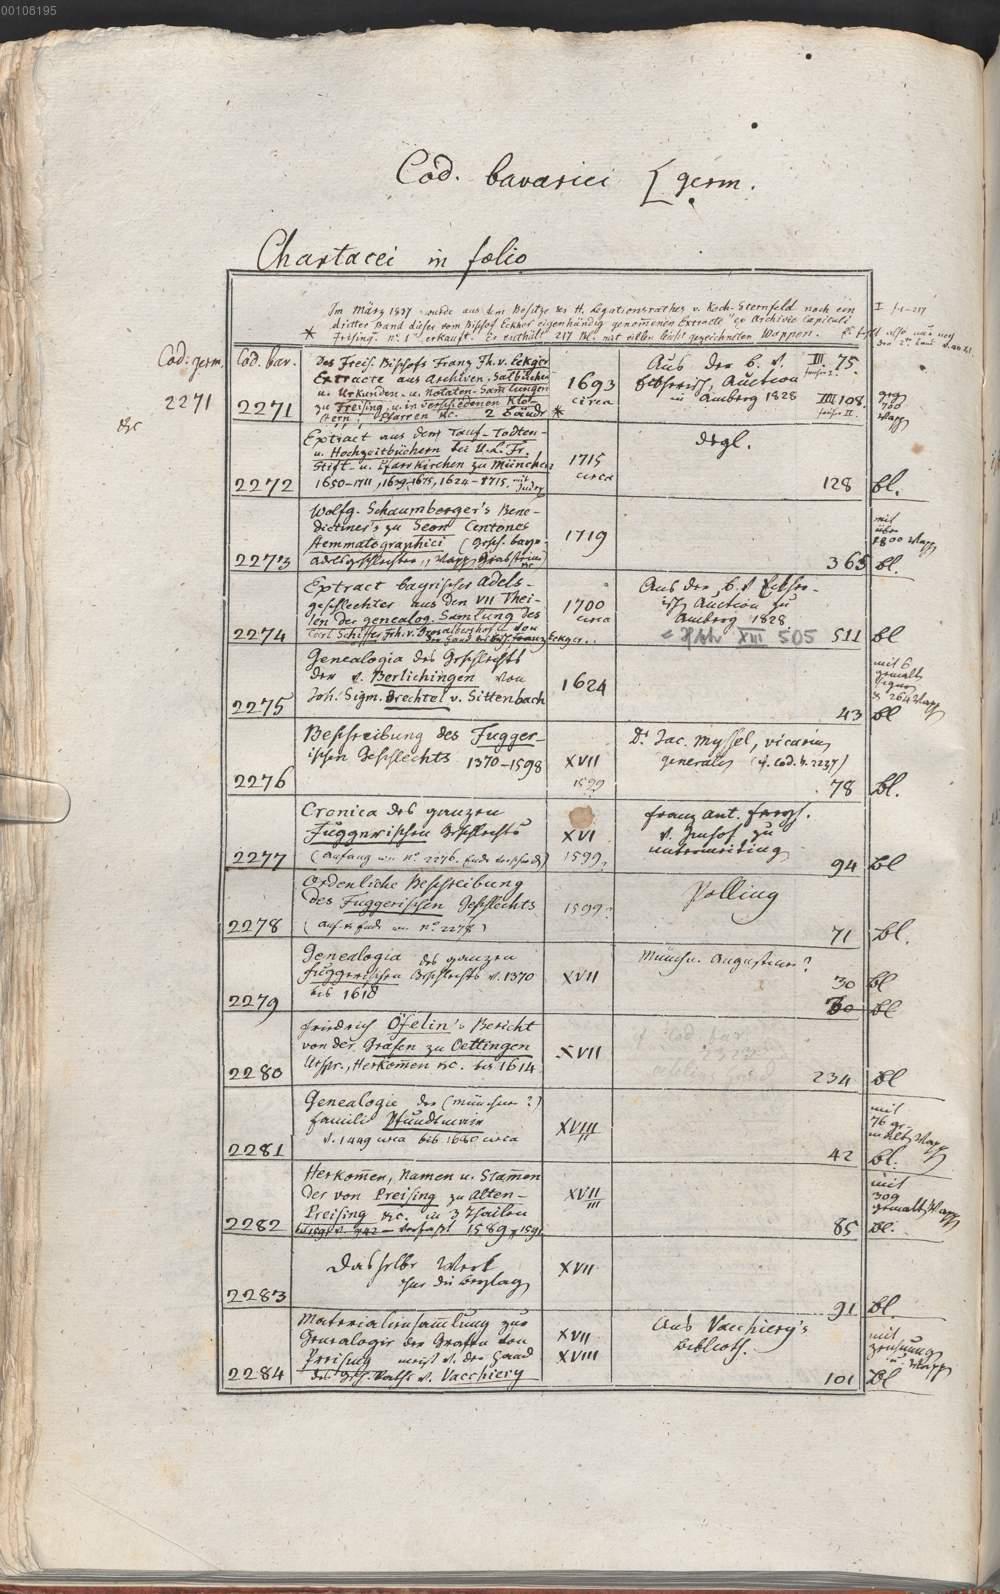 00108195
Cod. bavarici [germ.
Chartacei in folio
Im März 1837 wurde aus dem Besitze des H. Legationsrathes v. Koch-Sternfeld noch ein
dritter Band dieser vom Bischof Eckher eigenhändig genom̅enen Extracte "ex Archivio Capituli
* Frising. nº 1" erkauft. Er enthält 217 Bl. mit vielen leicht gezeichneten Wappen.
I f. 1-217
Cod. germ.
2271
&c
Cod. bav.
2271
Des Freis. Bischofs Franz Fh. v. Eckger
Extracte aus Archiven, Salbüchern
u. Urkunden- u. Notaten-Sam̅lungen
zu Freising u. in verschiedenen Klöt-
stern, Pfarren &c. 2 Bände *
1693
circa
Aus der b. v.
Auction
in Amberg 1828
III 75.
früher I.
IIII 108.
früher II.
700
Wapp
2272
Extract aus dem Tauf-Todten-
u. Hochzeitbüchern bei U. L. Fr.
Stift- u. Pfarrkirchen zu München
1650-1711, 1639-1675, 1624-1715. mit
Index
1715
circa
dsgl.
128 bl.
2273
Wolfg. Schaumberger's Bene-
dictiner's zu Seon Centones
stemmatographici (Gesch. bayr.
Adelsgeschlechter, Wapp, Grabsteine
&c
1719
365 bl.
mit
über
1800 Wapp
2274
Extract bayrischer Adels-
geschlechter aus den VII Thei-
len der genealog. Samlung des
1700
circa
Aus der b. v.
Auction zu
Amberg 1828.
XIII 505
511 bl
2275
Genealogia des Geschlechts
der v. Berlichingen von
Joh. Sigm. Brechtel v. Sittenbach
1624
43 bl
mit 6
gemalt
Figuren
& 264 Wapp
2276
Beschreibung des Fugger-
ischen Geschlechts 1370-1598
XVII
1599
Dr. Jac. Myssel, vicarius
generalis (cf. Cod. b. 2237)
78 bl.
2277
Cronica des ganzen
Fuggerischen Geschlechts
(Anfang wie nº 2276. Ende verschieden)
XVI
1599.
Franz Ant. Freyh.
v. Imhof zu
Untermeitling
94 bl
2278
Ordenliche Beschreibung
des Fuggerischen Geschlechts
(Anf. & Ende wie nº 2278)
1599?
Polling
71 bl.
2279
Genealogia des ganzen
Fuggerischen Geschlechts v. 1370
bis 1618
XVII
Münchn. Augustiner?
30 bl
30 bl
2280
Friedrich Öfelin's Bericht
von der Grafen zu Oettingen
Urspr., Herkom̅en &c. bis 1614
XVII
234 bl
2281
Genealogie der (Münchner?)
Familie Pfundtmair
v. 1449 circa bis 1680 circa
XVIII
42 bl.
mit
76 ge-
malt Wapp
2282
Herkom̅en, Namen u. Stam̅en
der von Preising zu Alten-
Preising &c. in 3 Theilen
verfaßt 1589 & 1591
XVII
III
85 bl.
mit
309
gemalt Wapp
2283
Dasselbe Werk
XVII
91 bl.
2284
Materialiensam̅lung zur
Genealogie der Grafen von
Preising meist v. der Hand
des Geh. Raths v. Vacchiery
XVII
XVIII
Aus Vacchiery's
Biblioth.
101 bl
mit
Zeichnung
u. Wapp